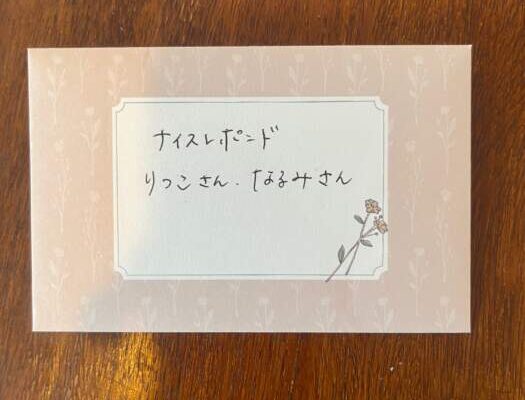 ナイスレポンド
りつこさん.なるみさん